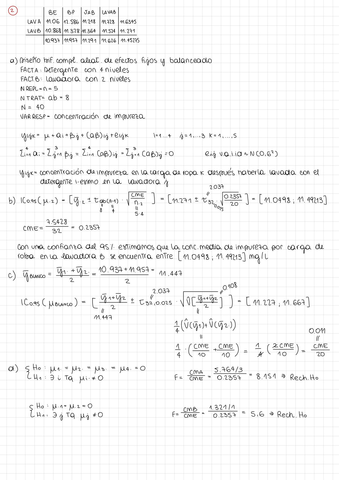 2
BE BP JAB LAVAB
LAVA 11.06 12.586 11.218 11.728 11.6395
LAVB 10.868 11.328 11.364 11.524 11.271
10.937 11.957 11.291 11.626 11.45275
a) Diseño trif. compl. aleat. de efectos fijos y balanceado
FACTA: Detergente con 4 niveles
FACTB: Lavadora con 2 niveles
NREPL = n = 5
NTRAT = ab = 8
N = 40
VARRESP = concentración de impureza
yijk = μ + αi + βj + (αβ)ij + eijk i=1...4 j=1...3 k=1,...,5
Σαi = Σβj = Σ(αβ)ij = Σ(αβ)ij = 0 eij v.a.i.i.d ~ N(0,σ²)
yijk = concentración de impureza en la carga de ropa k después haberla lavado con el
detergente i-esimo en la lavadora j
b) IC95 (μ2) = [ȳ2 ± √CME/n] = [11.271 ± 2.037 √0.2357/20] = [11.0498, 11.49213]
5·4
CME = 7.5428/32 = 0.2357
Con una confianza del 95% estimamos que la conc. media de impureza por carga de
ropa en la lavadora B se encuentra entre [11.0498, 11.49213] mg/L
c) ȳBLANCO = ȳ1 + ȳ2 / 2 = 10.937 + 11.957 / 2 = 11.447
IC95 (μBLANCO) = [ȳ1 + ȳ2 / 2 ± t32,0.025 √V̂[ȳ1 + ȳ2 / 2]] = [11.227, 11.667]
2.037 0.108
11.447
1/4 (V̂(ȳ1) + V̂(ȳ2))
0.011
1/4 · (CME/10 + CME/10) = 1/4 (2CME/10) = CME/20
d) H0: μ1 = μ2 = μ3 = μ4 = 0 F = CMA/CME = 5.764/3 / 0.2357 = 8.151 → Rech. H0
H1: ∃ i TQ μi ≠ 0
H0: μ1 = μ2 = 0 F = CMB/CME = 1.321/1 / 0.2357 = 5.6 → Rech. H0
H1: ∃ j TQ μj ≠ 0